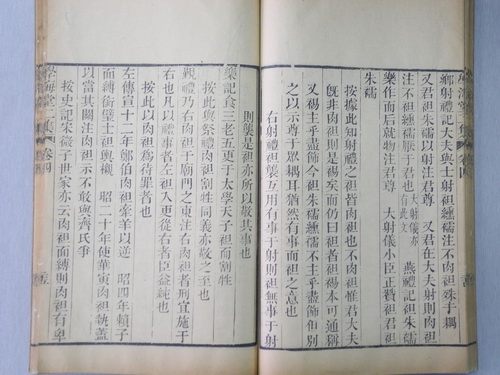 鄉射禮記大夫與士射袒纁襦注不肉袒殊于耦
又君袒朱襦以射注君尊 又君在大夫射則肉袒
注不袒纁襦厭于君也 大射儀亦有此文 燕禮記君袒朱襦
樂作而后就物注君尊 大射儀小臣正贊袒君袒
朱襦
按據此知射禮之袒皆肉袒也不肉袒惟君大夫
既非肉袒則是裼矣而仍曰袒者袒裼本可通稱
又裼主乎盡飾今袒朱襦纁襦不主乎盡飾但別
之以示尊于眾耦耳猶然有事而袒之意也
右射禮袒襲互用有事于射則袒無事于射
則襲是袒亦所以敬其事也
樂記食三老五更于太學天子袒而割牲
按此與祭禮肉袒割牲同義亦敬之至也
覲禮乃右肉袒于廟門之東注右肉袒者刑宜施于
右也凡以禮事者左袒入更從右者臣益純也
按此以肉袒為待罪者也
左傳宣十二年鄭伯肉袒牽羊以逆 昭四年賴子
面縛銜璧士袒輿櫬 昭二十年使華寅肉袒執蓋
以當其闕注肉袒示不敢與齊氏爭
按史記宋微子世家亦云肉袒面縛則肉袒有卑
學海堂二集 卷四